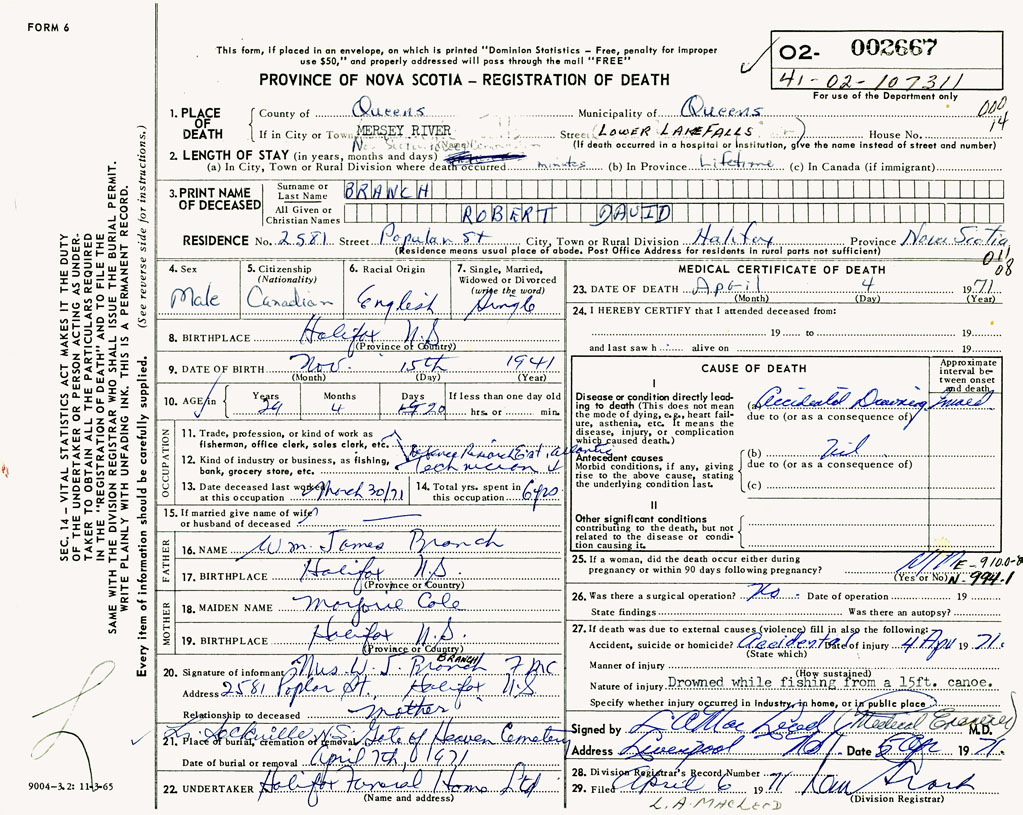 FORM 6
This form, if placed in an envelope, on which is printed "Dominion Statistics – Free, penalty for improper
use $50," and properly addressed will pass through the mail "FREE"
02- 002667
41-02-107311
For use of the Department only
PROVINCE OF NOVA SCOTIA – REGISTRATION OF DEATH
000
14
1. PLACE OF DEATH
County of Queens Municipality of Queens
If in City or Town MERSEY RIVER Street (LOWER LAKEFALLS) House No.
(If death occurred in a hospital or institution, give the name instead of street and number)
2. LENGTH OF STAY (in years, months and days)
(a) In City, Town or Rural Division where death occurred minutes (b) In Province Lifetime (c) In Canada (if immigrant)
3. PRINT NAME OF DECEASED
Surname or Last Name BRANCH
All Given or Christian Names ROBERT DAVID
RESIDENCE No. 2581 Street Popular St City, Town or Rural Division Halifax Province Nova Scotia
(Residence means usual place of abode. Post Office Address for residents in rural parts not sufficient)
011
08
4. Sex Male
5. Citizenship (Nationality) Canadian
6. Racial Origin English
7. Single, Married, Widowed or Divorced (write the word) Single
8. BIRTHPLACE Halifax N.S.
(Province or Country)
9. DATE OF BIRTH Nov. 15th 1941
(Month) (Day) (Year)
10. AGE in Years 29 Months 4 Days 20 If less than one day old hrs. or min.
OCCUPATION
11. Trade, profession, or kind of work as fisherman, office clerk, sales clerk, etc.
12. Kind of industry or business, as fishing, bank, grocery store, etc.
Technician
13. Date deceased last worked at this occupation March 30/71
14. Total yrs. spent in this occupation 6 yrs
15. If married give name of wife or husband of deceased
FATHER
16. NAME Wm. James Branch
17. BIRTHPLACE Halifax N.S.
(Province or Country)
MOTHER
18. MAIDEN NAME Marjorie Cole
19. BIRTHPLACE Halifax N.S.
(Province or Country)
20. Signature of informant Mrs. W. J. Branch BRANCH
Address 2581 Poplar St., Halifax N.S
Relationship to deceased mother
21. Place of burial, cremation or removal Lr. Sackville N.S. Gate of Heaven Cemetery
Date of burial or removal April 7th, 1971
22. UNDERTAKER Halifax Funeral Home Ltd
(Name and address)
MEDICAL CERTIFICATE OF DEATH
23. DATE OF DEATH April 4 1971
(Month) (Day) (Year)
24. I HEREBY CERTIFY that I attended deceased from:
19 to 19
and last saw h alive on 19
CAUSE OF DEATH
Approximate interval between onset and death
I
Disease or condition directly leading to death (This does not mean the mode of dying, e.g., heart failure, asthenia, etc. It means the disease, injury, or complication which caused death.)
(a) Accidental Drowning
due to (or as a consequence of)
Antecedent causes
Morbid conditions, if any, giving rise to the above cause, stating the underlying condition last.
(b) Nil
due to (or as a consequence of)
(c)
II
Other significant conditions
contributing to the death, but not related to the disease or condition causing it.
25. If a woman, did the death occur either during pregnancy or within 90 days following pregnancy?
(Yes or No)
E-9100-8
N-994-1
26. Was there a surgical operation? No Date of operation 19
State findings Was there an autopsy?
27. If death was due to external causes (violence) fill in also the following:
Accident, suicide or homicide? Accidental Date of injury 4 Apr 1971.
(State which)
Manner of injury
(How sustained)
Nature of injury Drowned while fishing from a 15ft. canoe.
Specify whether injury occurred in industry, in home, or in public place
Signed by L. A. MacLeod (Medical Examiner) M.D.
Address Liverpool NS. Date 5 Apr 1971.
28. Division Registrar's Record Number
29. Filed April 6 1971
(Division Registrar)
L.A. MACLEOD
SEC. 14 – VITAL STATISTICS ACT MAKES IT THE DUTY
OF THE UNDERTAKER OR PERSON ACTING AS UNDER-
TAKER TO OBTAIN ALL THE PARTICULARS REQUIRED
IN THE "REGISTRATION OF DEATH" AND TO FILE THE
SAME WITH THE DIVISION REGISTRAR WHO SHALL ISSUE THE BURIAL PERMIT.
WRITE PLAINLY WITH UNFADING INK. THIS IS A PERMANENT RECORD.
Every item of information should be carefully supplied. (See reverse side for instructions.)
9004-3.2: 11-3-65